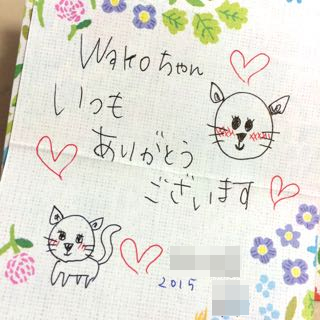 Wakoちゃん
いつも
ありがとう
ございます
2015